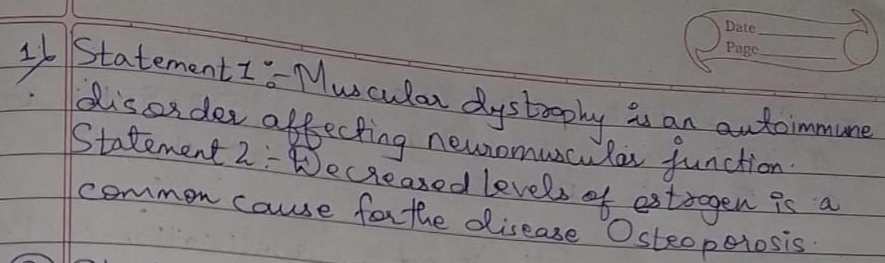 Date
Page
1) Statement 1 :- Muscular dystrophy is an autoimmune
disorder affecting neuromuscular function.
Statement 2 :- Decreased levels of estrogen is a
common cause for the disease Osteoporosis.